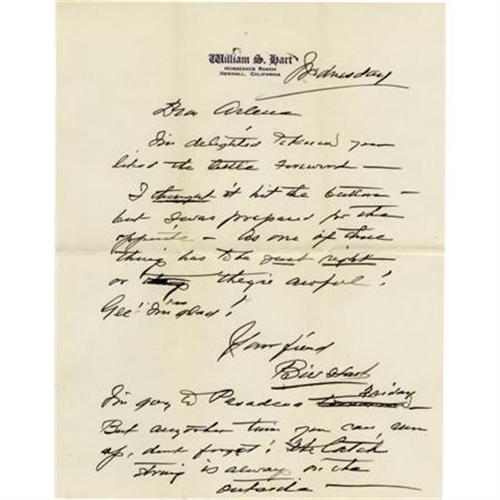 William S. Hart
Horseshoe Ranch
Newhall, California
Wednesday
Dear Arlena
I'm delighted to know you
liked the little Foreword —
I thought it hit the button —
but I was prepared for the
opposite — As one of those
things has to be just right
or they they're awful!
Gee! I'm glad!
Your friend
Bill Hart
I'm going to Pasadena Friday
But anyother time you can, run
up, don't forget! The Latch
string is always on the
outside —